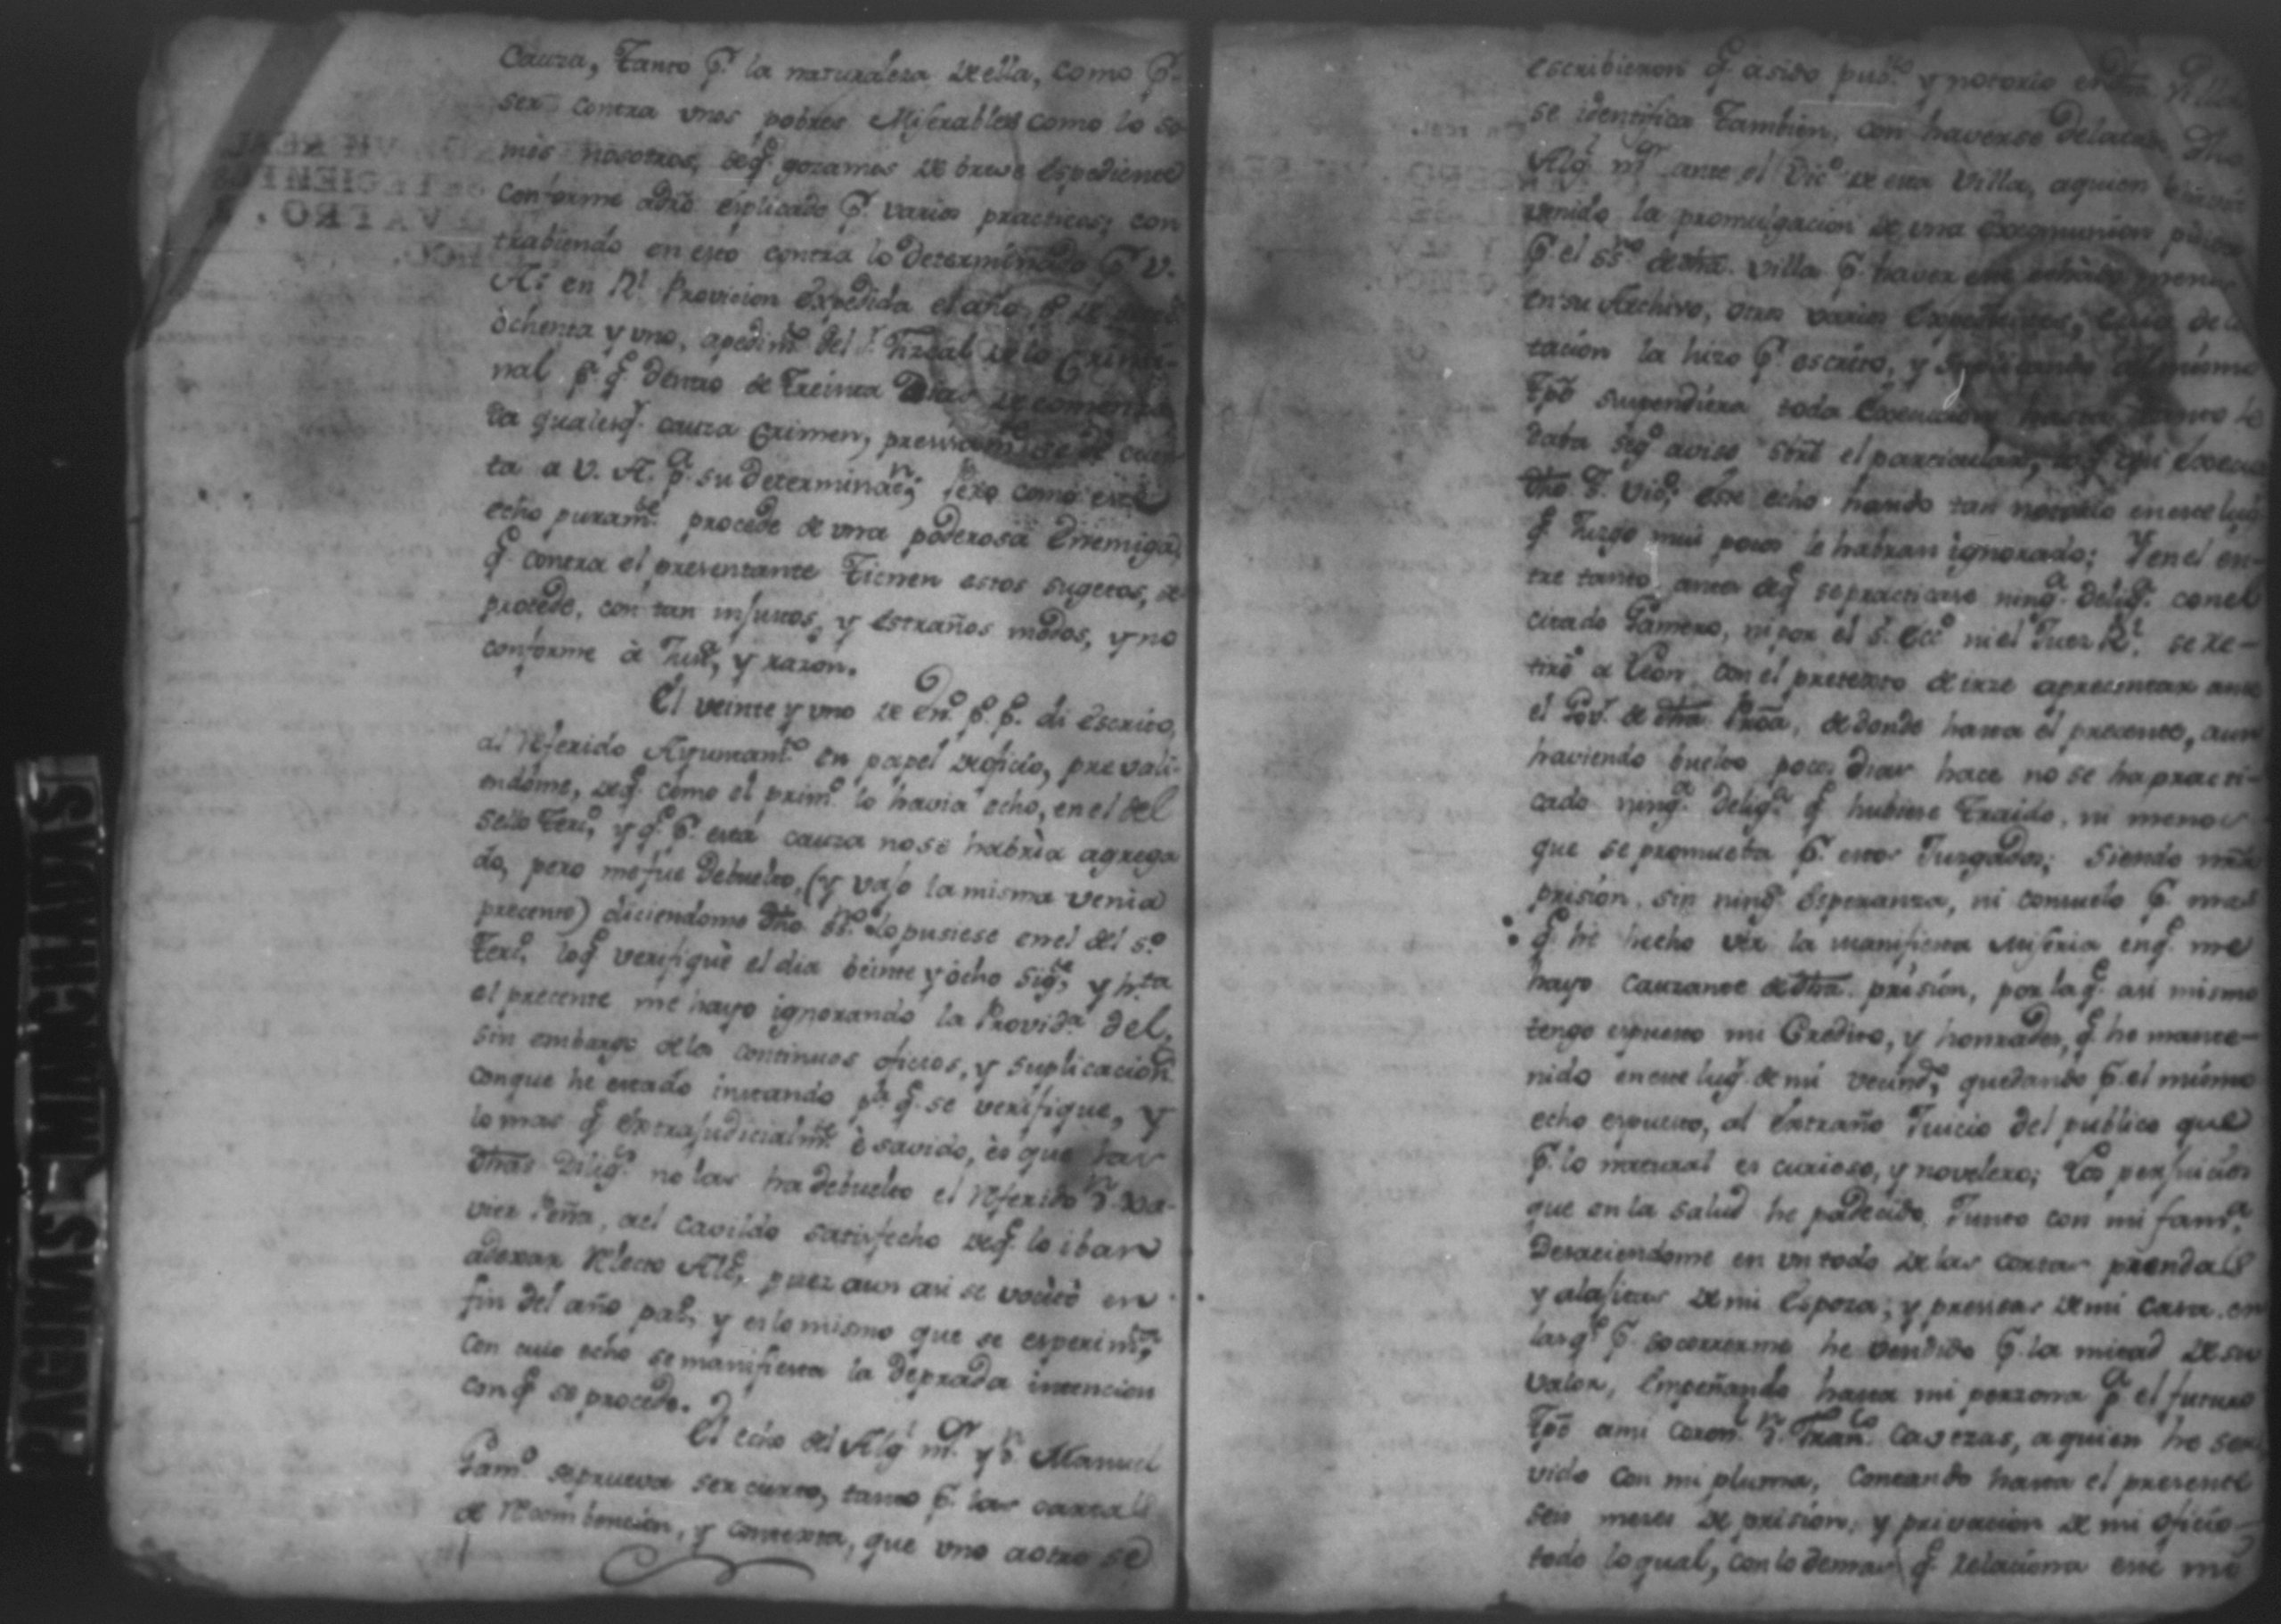 Cauza, tanto p.r la naturaleza de ella, como p.r
ser contra unos pobres Miserables como lo so
mos nosotros, deq.e gozamos de breve espediente
conforme adro esplicado p.r varios practicos; con
trabiendo en esto contra lo determinado p.r V.
A. en R.l Provicion expedida el año p.o de
ochenta y uno, apedim.to del S. Fiscal de lo Crimi-
nal p.a q.e dentro de treinta Dias de comenza
da qualesq.a cauza Crimen, precisam.te se dé cuen
ta a V. A. p.a su determinac.n; Pero como este
echo puram.te procede de una poderosa Enemiga,
q.e contra el presentante tienen estos sugetos, se
procede, con tan injustos, y estraños modos, y no
conforme à Just.a, y razon.
El veinte y uno de En.o p.p. di Escrito,
al Referido Ayuntam.to en papel deoficio, prevali-
endome, deq.e como el prim.o lo havia echo, en el del
sello Terc.o, y q.e p.r esta cauza nose habria agrega
do, pero mefue debuelto, (y vajo la misma venia
precente) diciendome dho SS.no lo pusiese en el del s.o
Terc.o, loq.e verifiquè el dia beinte y òcho sig.te, y h.ta
el precente me hayo ignorando la Provid.a del,
sin embargo delos continuos oficios, y suplicacion
conque he estado instando p.a q.e se verifique, y
lo mas q.e extrajudicialm.te è savido, ès que las
dhas Dilig.s no las ha debuelto el Referido D.n Xa-
vier Peña, ael cavildo satisfecho deq.e lo iban
adexar Relecto Alc.e, puez aun asi se vocicò en
fin del año pas.o, y es lo mismo que se esperim.ta,
con cuio echo se manifiesta la deprada intencion
con q.e se procede.
El echo del Alg.l m.or y D.n Manuel
Gam.o seprueva ser cierto, tanto p.r las cartas
de Recombencion, y contexta, que uno aotro se
escribieron q.e asido pub.co y notorio en dha Villa
se identifica tambien, con haverse delatado dho
Alg.l m.or ante el Vic.o de esta Villa, aquien
venido la promulgacion de una Excomunion
p.r el SS.no de dha Villa p.r haver menos
en su Archivo, otros varios Expedientes, cuia dela
tacion la hizo p.r escrito, y suplicando al mismo
Tpo suspendiera toda Execucion hasta tanto le
daba seg.o aviso sbre el particular, loq.e asi
dho S. Vic.o; este echo hando tan notorio eneste lug.r
q.e Juzgo mui pocos le habran ignorado; Y en el en-
tre tanto antes deq.e sepracticase ning.a Delig.a con el
citado Gamero, ni por el S. Ecc.o ni el Juez R.l se re-
tirò a Leon, con el pretexto de irse apresentar ante
el Gov.r de dha Prôa, dedonde hasta el precente, aun
haviendo buelto pocos dias hace no se ha practi-
cado ning.a Delig.a q.e hubiese traido, ni menos
que se promueba p.r estos Juzgados; Siendo mña
prision, sin ning.a Esperanza, ni consuelo p.r mas
q.e he hecho ver la manifiesta Miseria enq.e me
hayo cauzante de dha prision, por la q.e asi mismo
tengo espuesto mi Credito, y honradez, q.e he mante-
nido eneste lug.r de mi vecind.d, quedando p.r el mismo
echo espuesto, al Extraño Juicio del publico que
p.r lo natural es curioso, y novelero; Los perjuicios
que en la salud he padecido, Junto con mi fam.a,
Desaciendome en un todo de las cortas prendas
y alajitas de mi Espoza, y preseas de mi casa, en
lasq.e p.r socorrerme he vendido p.r la mitad de su
valor, Empeñando hasta mi perzona p.a el futuro
Tpo ami Coron.l D.n Fran.co Caseras, aquien he ser
vido con mi pluma, Contando hasta el presente
seis meses de prision, y privacion de mi oficio-
todo loqual, con lo demas q.e relaciona este mi
PAGINAS MANCHADAS